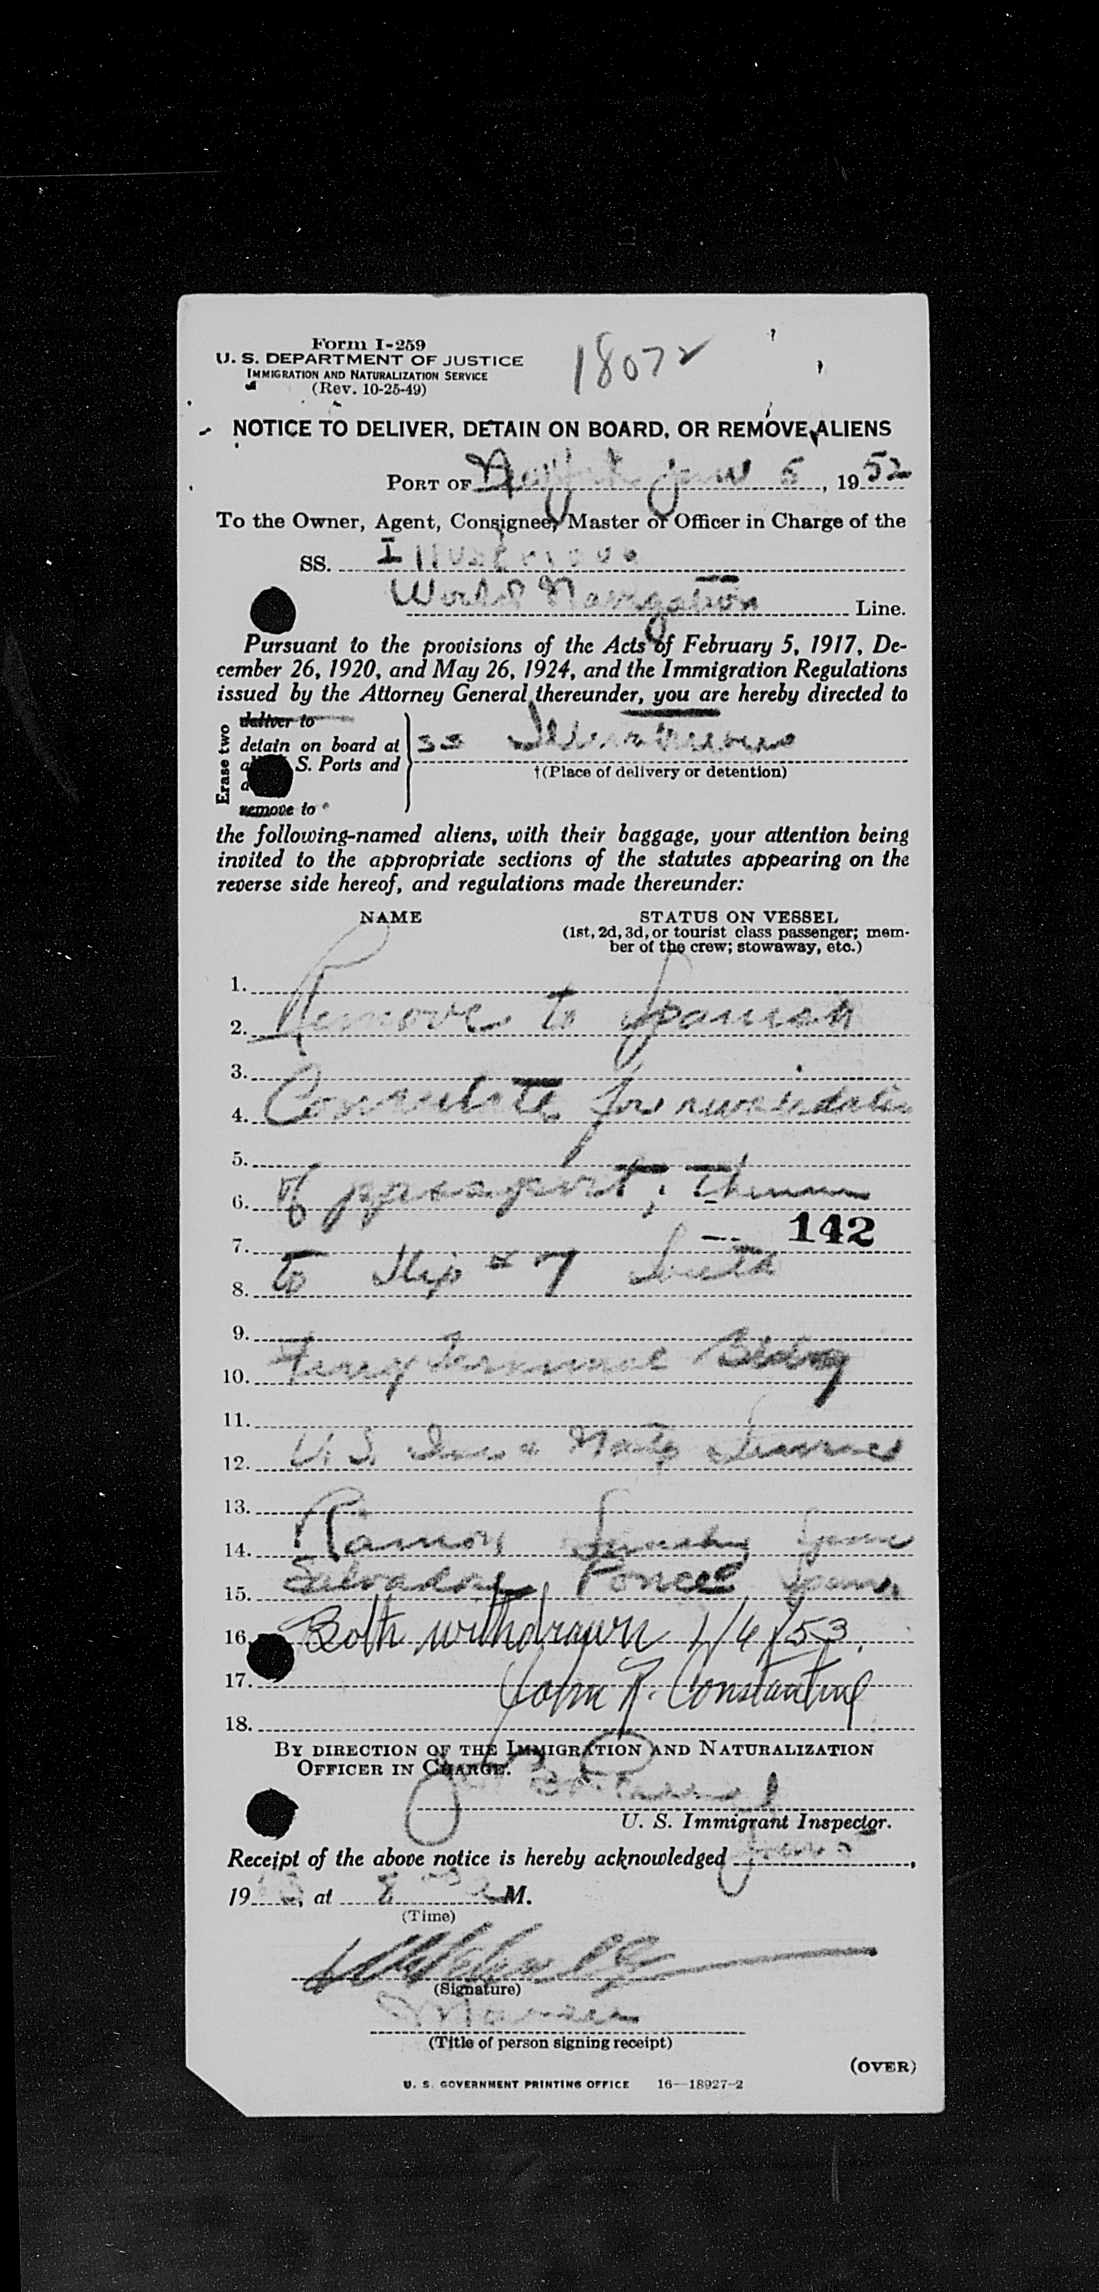 Form I-259
U. S. DEPARTMENT OF JUSTICE
IMMIGRATION AND NATURALIZATION SERVICE
(Rev. 10-25-49)
18072
NOTICE TO DELIVER, DETAIN ON BOARD, OR REMOVE ALIENS
PORT OF New York Jan 5, 1952
To the Owner, Agent, Consignee, Master or Officer in Charge of the
SS. Illustrious
World Navigation Line.
Pursuant to the provisions of the Acts of February 5, 1917, De-
cember 26, 1920, and May 26, 1924, and the Immigration Regulations
issued by the Attorney General thereunder, you are hereby directed to
Erase two
deliver to
detain on board at SS
S. Ports and
†(Place of delivery or detention)
remove to
the following-named aliens, with their baggage, your attention being
invited to the appropriate sections of the statutes appearing on the
reverse side hereof, and regulations made thereunder:
NAME STATUS ON VESSEL
(1st, 2d, 3d, or tourist class passenger; mem-
ber of the crew; stowaway, etc.)
1.
2. Remove to Spanish
3.
4. Consulate for
5.
6. of passport; Then
142
7.
8. to Slip # 7 South
9.
10. Ferry Terminal Bldng
11.
12. U. S. Imm & Natz Service
13.
14. Ramon
15. Salvador Ponce
16. Both withdrawn 1/6/53.
17. John R. Constantine
18.
BY DIRECTION OF THE IMMIGRATION AND NATURALIZATION
OFFICER IN CHARGE.
U. S. Immigrant Inspector.
Receipt of the above notice is hereby acknowledged Jan 5,
1953, at 8 M.
(Time)
(Signature)
Master
(Title of person signing receipt)
(OVER)
U. S. GOVERNMENT PRINTING OFFICE 16—18927-2